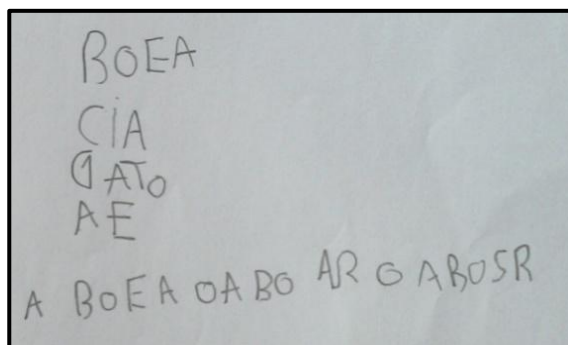 BOEA
CIA
GATO
AE
A BOEA OABO AR O ABOSR